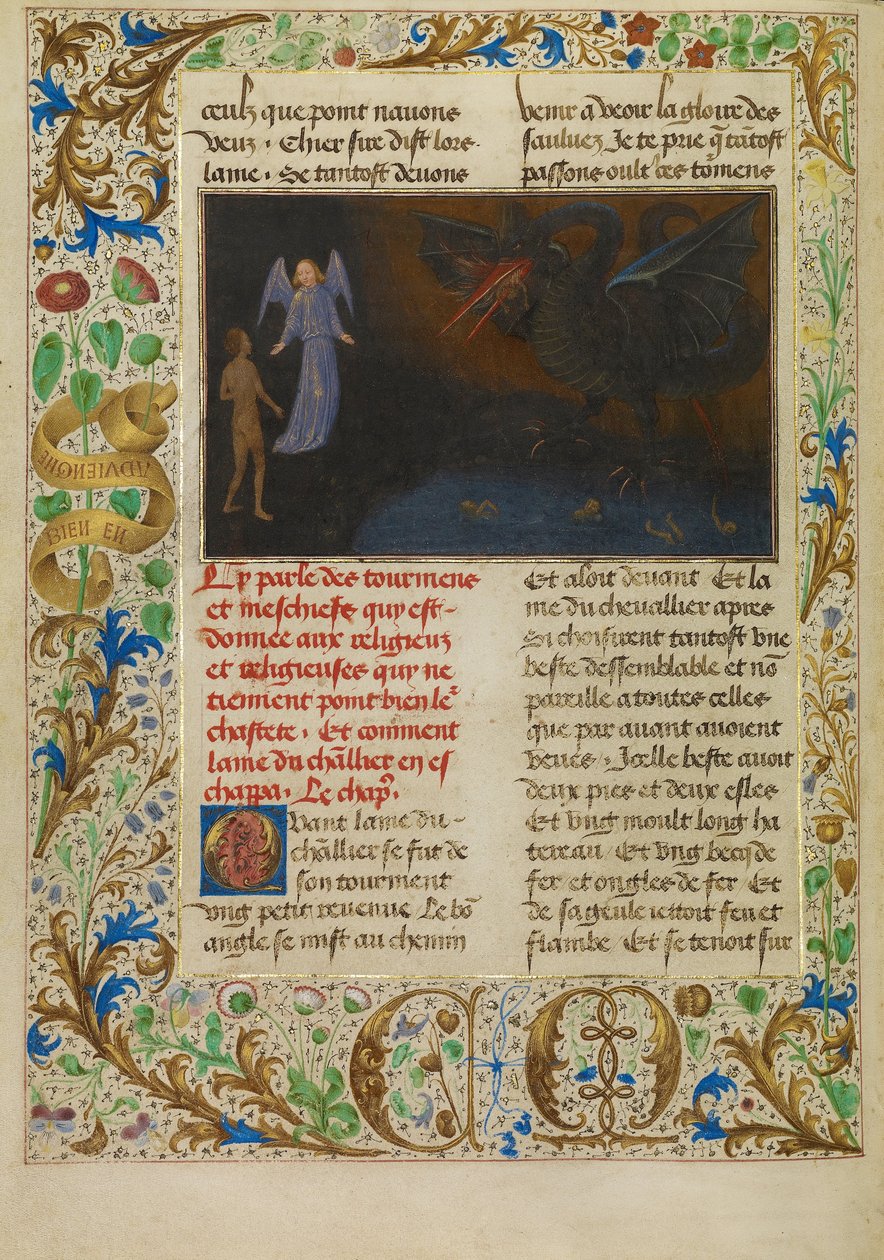 ceulz que point nauons
veuz . Chier sire dist lors
lame . Se tantost deuons
venir a veoir la gloire des
sauluez Je te prie q̃ tãtost
passons oult̃ ces tõmens
Cy parle des tourmens
et meschiefs quy est
donnee aux religieuz
et religieuses quy ne
tiennent point bien le͛
chastete . Et comment
lame du chãllier en es
chappa . Le chap̃.
Quant lame du
chãllier se fut de
son tourment
vng petit reuenue Le bõ
angle se mist au chemin
Et aloit deuant Et la
me du cheuallier apres
Si choisirent tantost vne
beste dessemblable et nõ
pareille a toutes celles
que par auant auoient
veues . Icelle beste auoit
deux pies et deux esles
Et vng moult long ha
tereau / Et vng becq de
fer / et ongles de fer Et
de sa geule iettoit feu et
flambe / Et se tenoit sur
BIEN EN
ADVIENGNE
C M